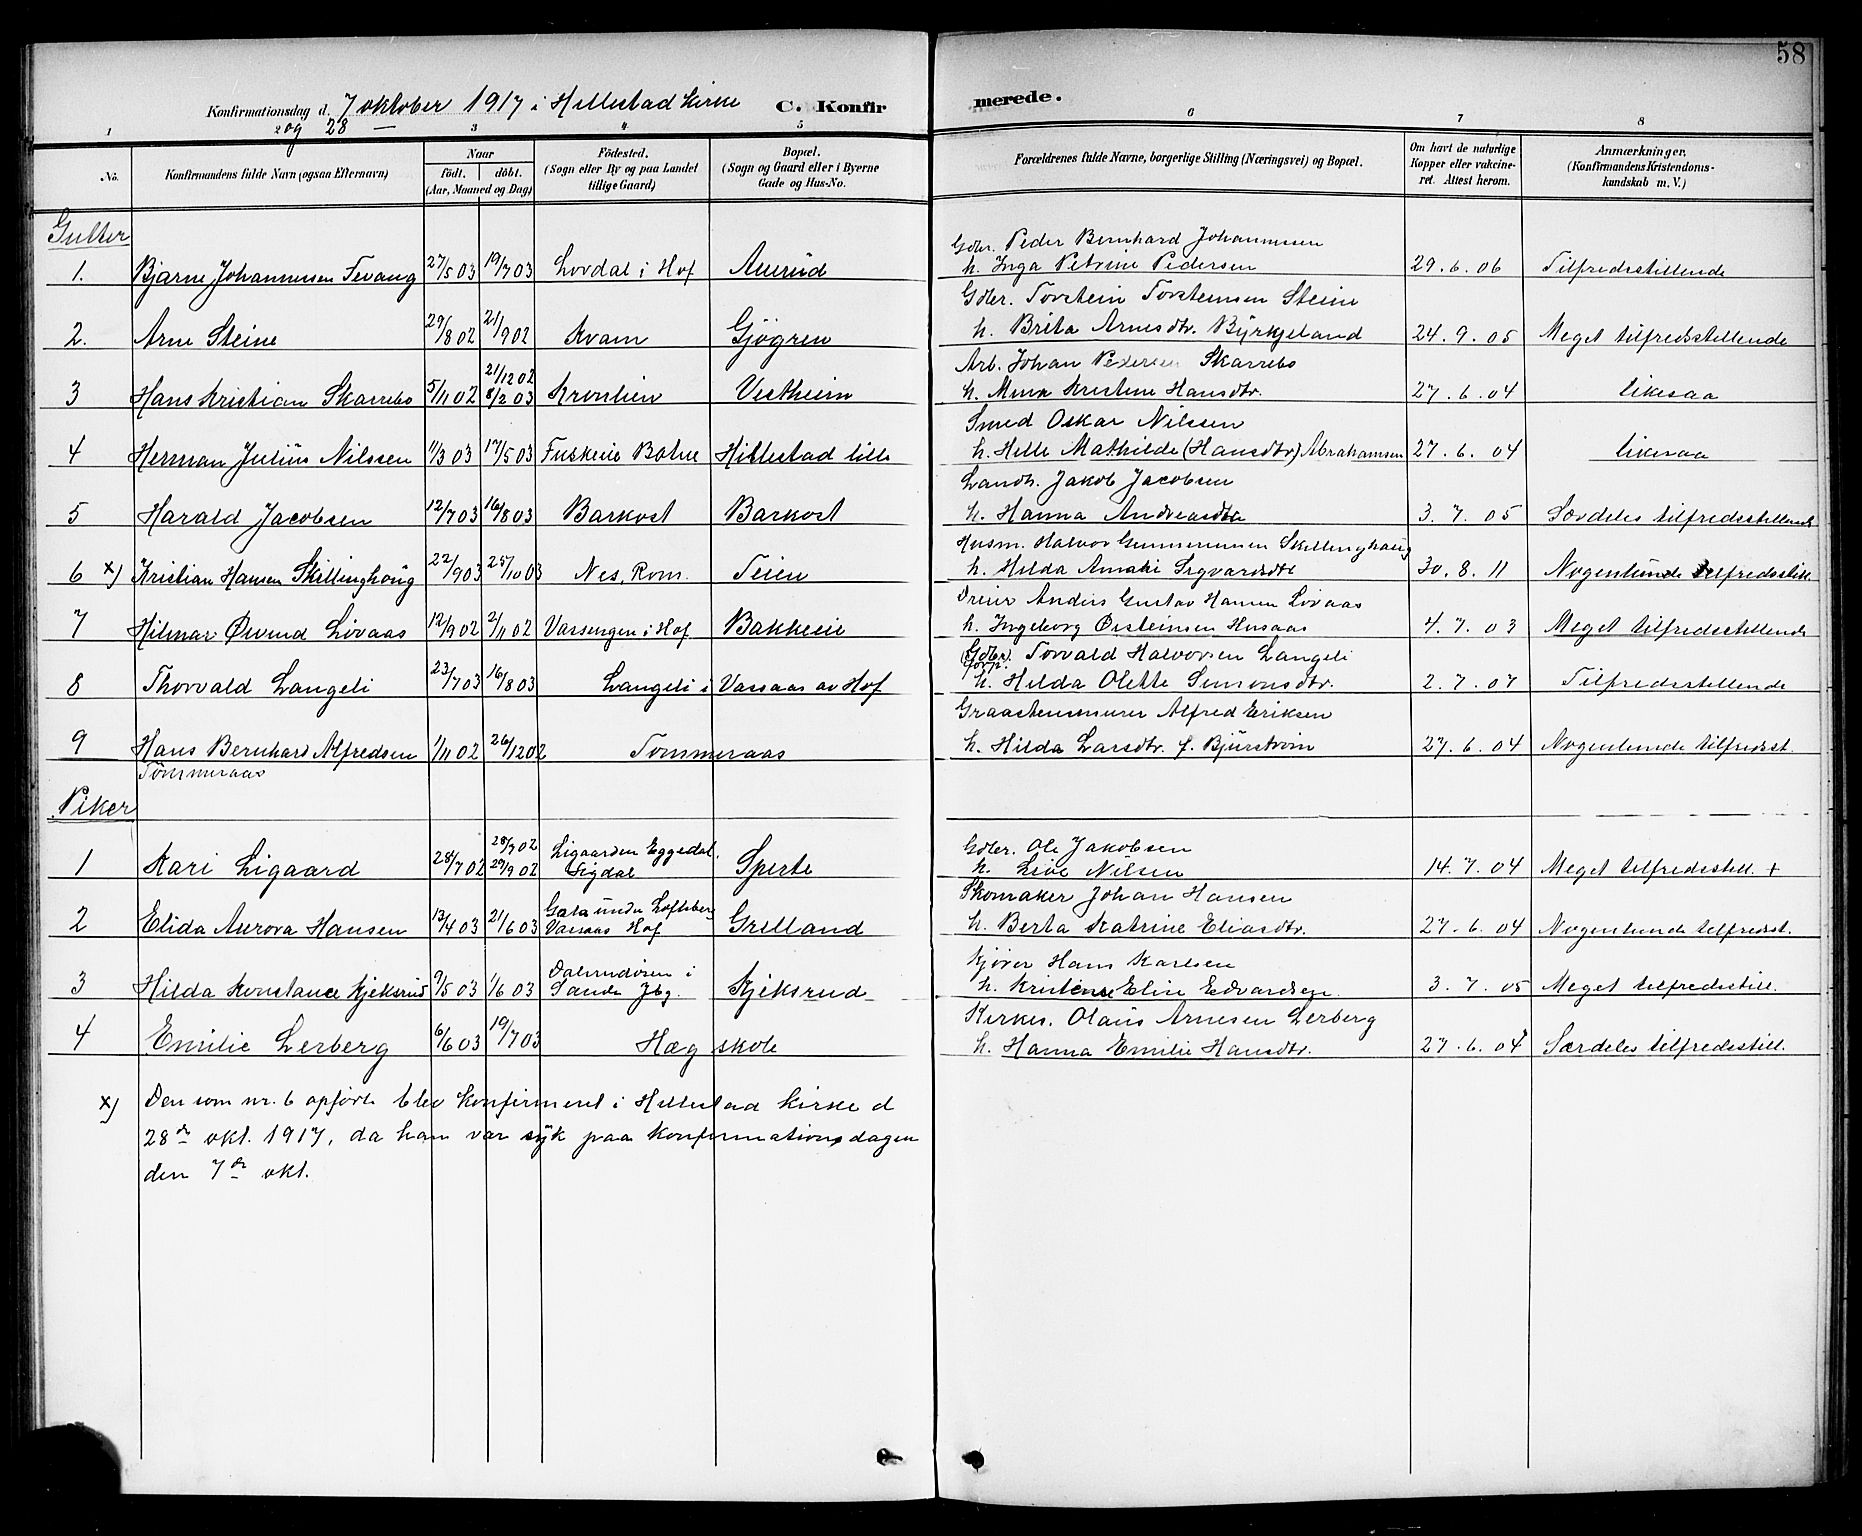 58
Konfirmationsdag d. 7 oktober 1917 i Hillestad kirke C. Konfirmerede.
og 28 —
1 2 3 4 5 6 7 8
No. Konfirmandens fulde Navn (ogsaa Efternavn) Naar födt. döbt. (Aar, Maaned og Dag) Födested. (Sogn eller By og paa Landet tillige Gaard) Bopæl. (Sogn og Gaard eller i Byerne Gade og Hus-No. Forældrenes fulde Navne, borgerlige Stilling (Næringsvei) og Bopæl. Om havt de naturlige Kopper eller vakcineret. Attest herom. Anmærkninger. (Konfirmandens Kristendomskundskab m. V.)
Gutter
Gdbr. Peder Bernhard Johannesen
1. Bjarne Johannesen Tevang 27/5 03 19/7 03 Lovdal i Hof Aurud h. Inga Petrine Pedersen 29.6.06 Tilfredsstillende
Gdbr. Torstein Torsteinsen Steine
2. Arne Steine 29/8 02 21/9 02 Kvam Gjøgren h. Brita Arnesdtr. Byrkjeland 24.9.05 Meget tilfredsstillende
Arb. Johan Pedersen Skarrebo
21/12 02
3 Hans Kristian Skarrebo 5/11 02 8/2 03 Kronlien Vestheim h. Kristine Hansdtr. 27.6.04 likesaa
Smed Oskar Nilssen
4 Herman Julius Nilssen 11/3 03 17/5 03 Botne Hillestad lille h. Helle Mathilde (Hansdtr) Abrahamsen 27.6.04 likesaa
Landh. Jakob Jacobsen
5 Harald Jacobsen 12/7 03 16/8 03 Barkost Barkost h. Hanna Andreasdtr 3.7.05 Særdeles tilfredsstillende
Husm. Halvor Gunnerensen Skillinghaug
6 x) Kristian Hansen Skillinghoug 22/9 03 25/10 03 Nes, Rom. Teien h. Hilda Amalie Sigvardsdtr 30.8.11 Nogenlunde tilfredsstill.
Dreier Anders Gustav Hansen Lövaas
7 Hilmar Øivind Lövaas 12/9 02 2/11 02 Vassengen i Hof Bakkeeie h. Ingeborg Øisteinsen Husaas 4.7.03 Meget tilfredsstillende
(Gdbr). Torvald Halvorsen Langeli
forp.
8 Thorvald Langeli 23/7 03 16/8 03 Langeli i Vassaas av Hof h. Hilda Olette Simonsdtr. 2.7.07 Tilfredsstillende
Graastensmurer Alfred Eriksen
9 Hans Bernhard Alfredsen 1/11 02 26/12 02 Tømmeraas h. Hilda Larsdtr. f. Bjürström 27.6.04 Nogenlunde tilfredsst.
Tømmeraas
Piker
28/7 02 Ligaarden Eggedal, Gdbr. Ole Jakobsen
1 Kari Ligaard 28/7 02 29/9 02 Sigdal Sperte h. Live Nilsen 14.7.04 Meget tilfredsstill. +
Gata under Lofteberg Skomaker Johan Hansen
2 Elida Aurora Hansen 13/4 03 21/6 03 Vassaas Hof Grelland h. Berta Katrine Eliasdtr. 27.6.04 Nogenlunde tilfredsst.
Dalsrudösen i Kjører Hans Karlsen
3 Hilda Konstance Kjeksrud 9/5 03 1/6 03 Sande Jbg. Kjeksrud h. Kristense Elise Edvardsen 3.7.05 Meget tilfredsstill.
Kirkes. Olaus Arnesen Lerberg
4 Emilie Lerberg 6/6 03 19/7 03 Hæg skole h. Hanna Emilie Hansdtr. 27.6.04 Særdeles tilfredsstill.
x) Den som nr. 6 opførte blev konfirmeret i Hillestad kirke d
28de okt. 1917, da han var syk paa konfirmationsdagen
den 7de okt.